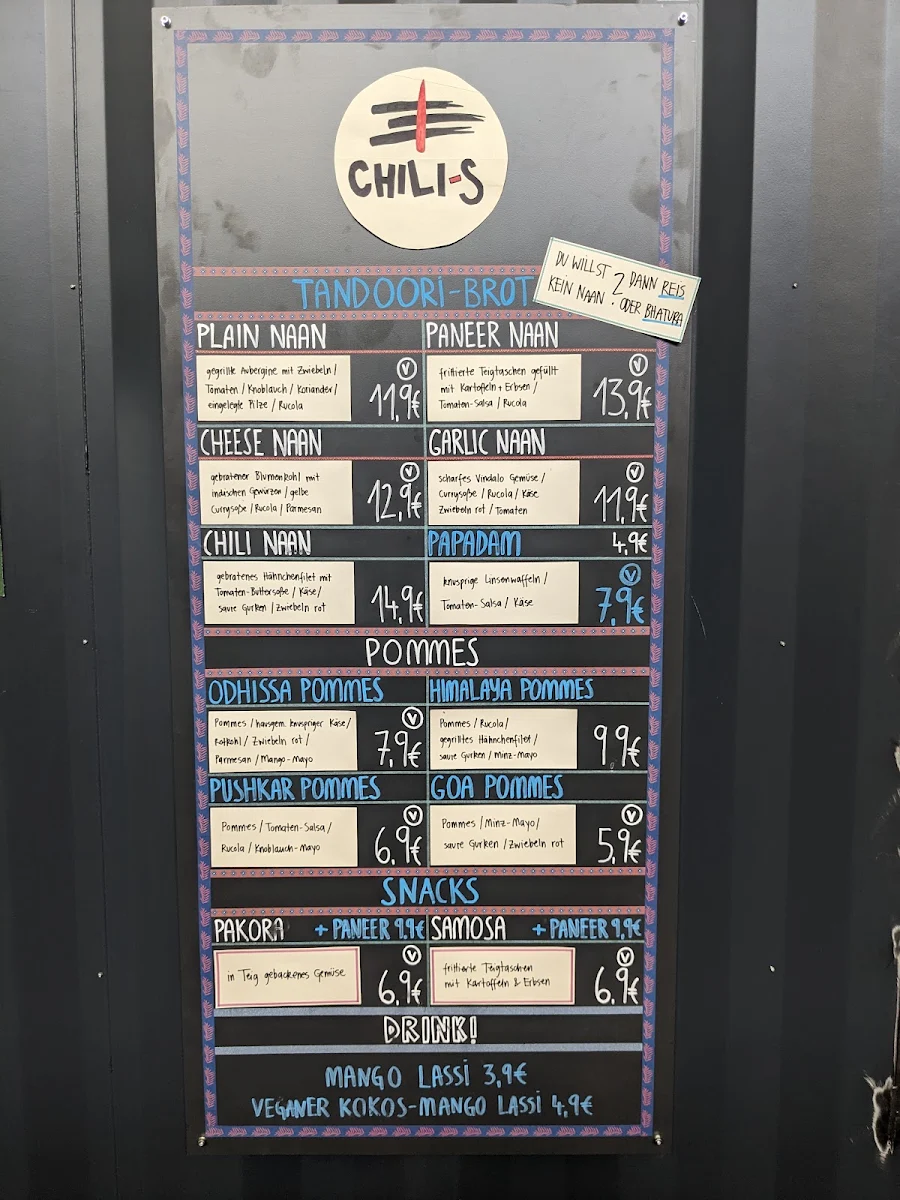 CHILI-S
DU WILLST
KEIN NAAN ?
DANN REIS
ODER BHATURA
TANDOORI-BROT
PLAIN NAAN
gegrillte Aubergine mit Zwiebeln /
Tomaten / Knoblauch / Koriander /
eingelegte Pilze / Rucola
V
11,9€
PANEER NAAN
frittierte Teigtaschen gefüllt
mit Kartoffeln + Erbsen /
Tomaten-Salsa / Rucola
V
13,9€
CHEESE NAAN
gebratener Blumenkohl mit
indischen Gewürzen / gelbe
Currysoße / Rucola / Parmesan
V
12,9€
GARLIC NAAN
scharfes Vindalo Gemüse /
Currysoße / Rucola / Käse
Zwiebeln rot / Tomaten
V
11,9€
CHILI NAAN
gebratenes Hähnchenfilet mit
Tomaten-Buttersoße / Käse/
saure Gurken / Zwiebeln rot
14,9€
PAPADAM 4,9€
knusprige Linsenwaffeln /
Tomaten-Salsa / Käse
V
7,9€
POMMES
ODHISSA POMMES
Pommes / hausgem. knuspriger Käse/
Rotkohl / Zwiebeln rot /
Parmesan / Mango-Mayo
V
7,9€
HIMALAYA POMMES
Pommes / Rucola /
gegrilltes Hähnchenfilet /
saure Gurken / Minz-Mayo
9,9€
PUSHKAR POMMES
Pommes / Tomaten-Salsa /
Rucola / Knoblauch-Mayo
V
6,9€
GOA POMMES
Pommes / Minz-Mayo/
saure Gurken / Zwiebeln rot
V
5,9€
SNACKS
PAKORA + PANEER 9,9€
in Teig gebackenes Gemüse
V
6,9€
SAMOSA + PANEER 9,9€
frittierte Teigtaschen
mit Kartoffeln & Erbsen
V
6,9€
DRINK!
MANGO LASSI 3,9€
VEGANER KOKOS-MANGO LASSI 4,9€